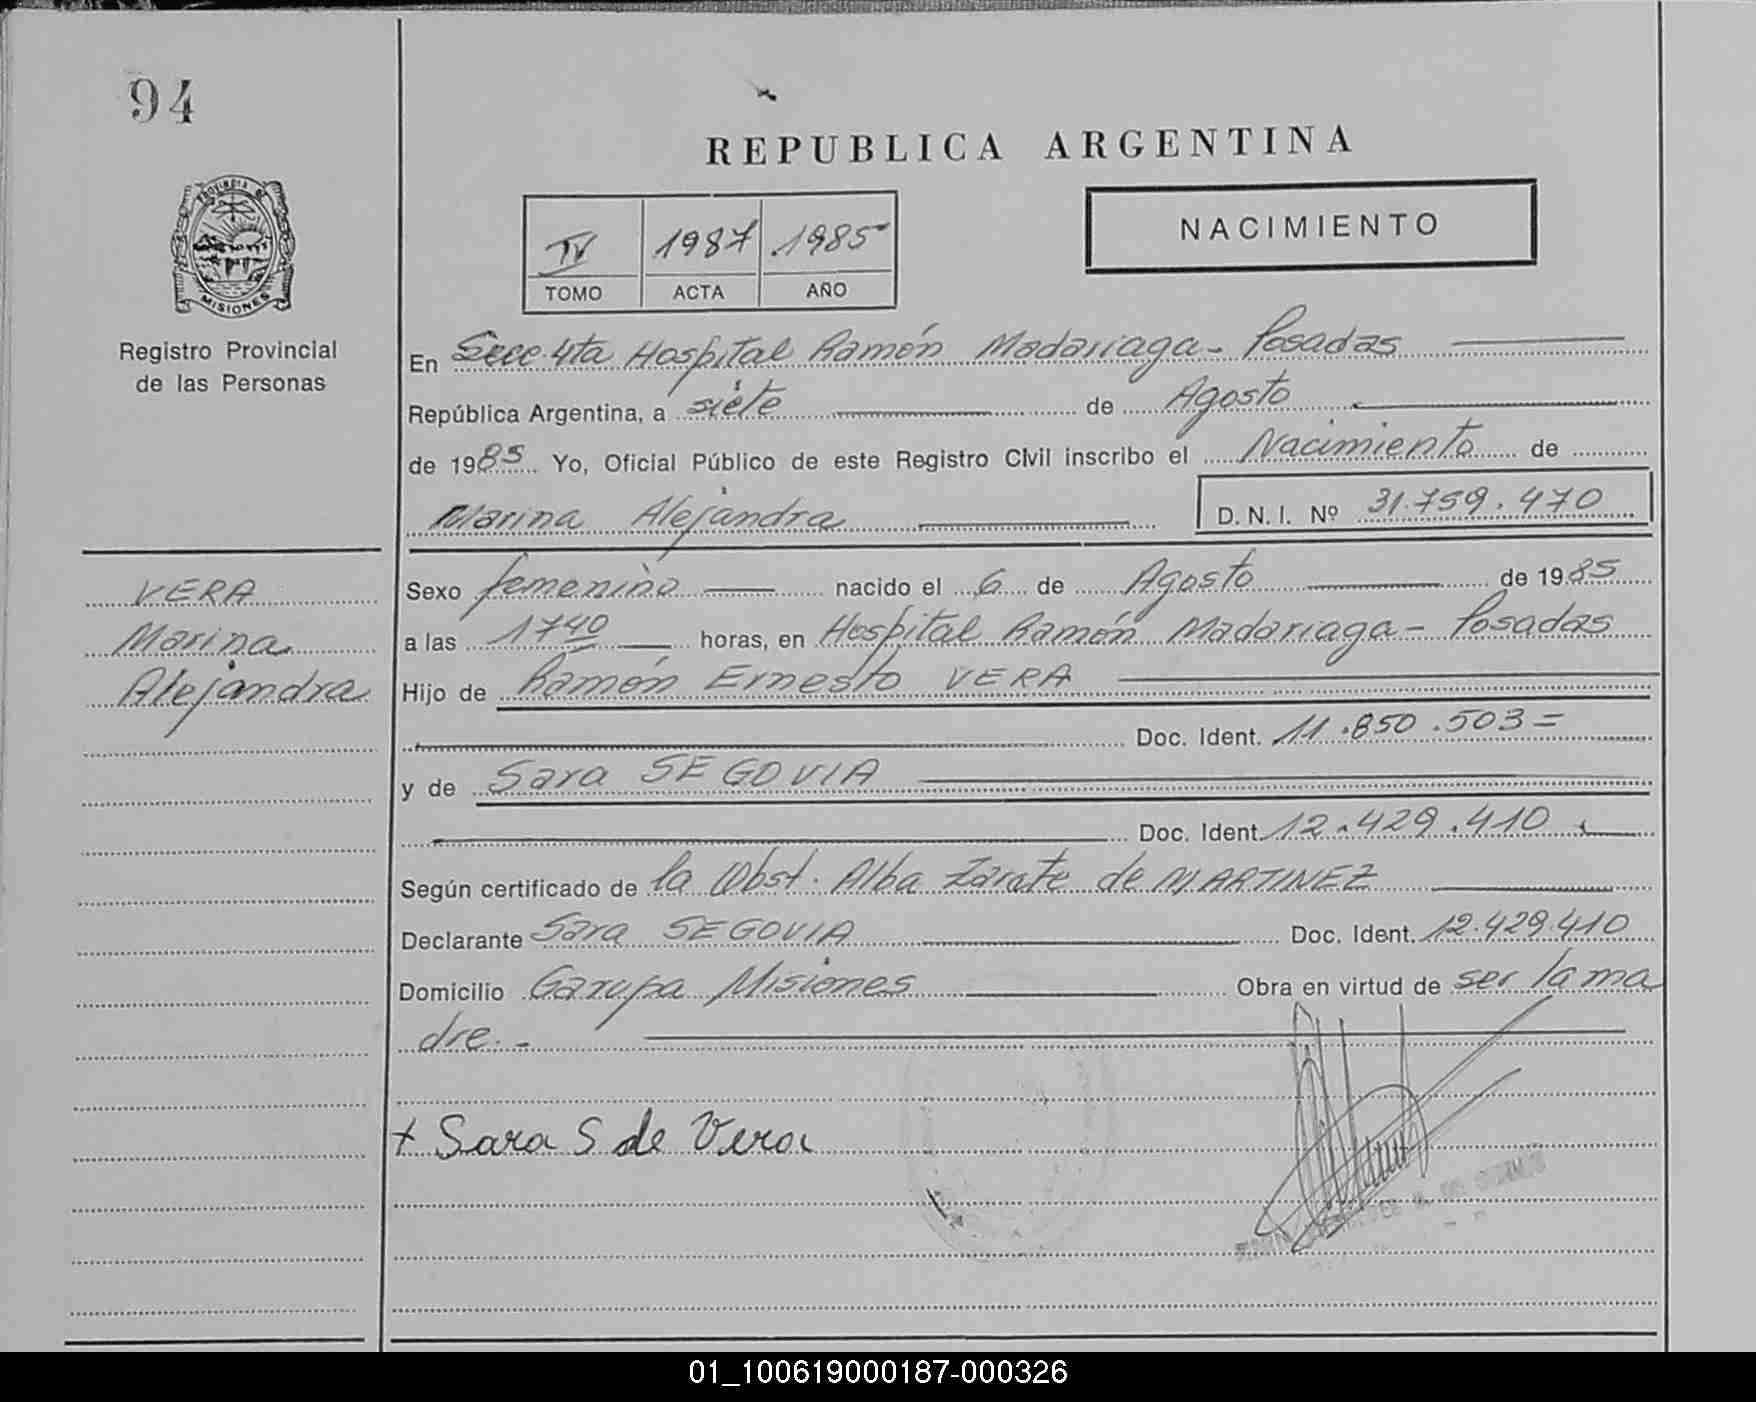 94
REPUBLICA ARGENTINA
PROVINCIA DE
MISIONES
Registro Provincial
de las Personas
IV 1987 1985
TOMO ACTA AÑO
NACIMIENTO
En Secc. 4ta Hospital Ramón Madariaga - Posadas
República Argentina, a siete de Agosto
de 1985 Yo, Oficial Público de este Registro Civil inscribo el Nacimiento de
Marina Alejandra D. N. I. Nº 31.759.470
VERA
Marina
Alejandra
Sexo femenino nacido el 6 de Agosto de 1985
a las 1740 horas, en Hospital Ramón Madariaga - Posadas
Hijo de Ramón Ernesto VERA
Doc. Ident. 11.850.503=
y de Sara SEGOVIA
Doc. Ident. 12.429.410
Según certificado de la Obst. Alba Zarate de MARTINEZ
Declarante Sara SEGOVIA Doc. Ident. 12.429.410
Domicilio Garupa Misiones Obra en virtud de ser la ma
dre.-
+ Sara S de Vera
01_100619000187-000326